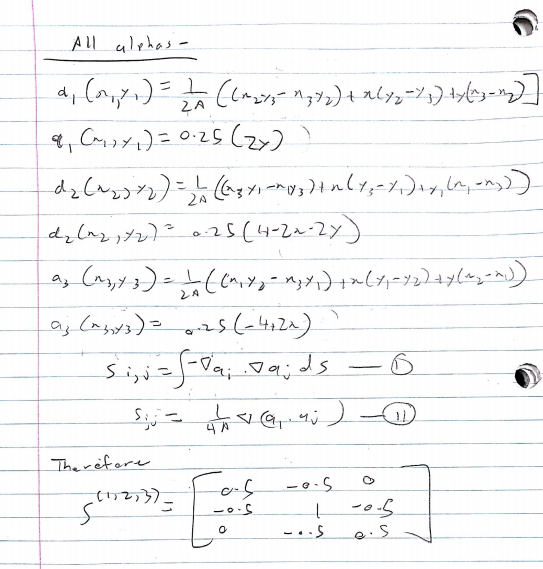 All alphas -
α₁ (x₁, y₁) = 1/2A ((x₂y₃ - x₃y₂) + x(y₂ - y₃) + y(x₃ - x₂)]
α₁ (x₁, y₁) = 0.25 (2y)
α₂ (x₂, y₂) = 1/2A ((x₃y₁ - x₁y₃) + x(y₃ - y₁) + y, (x₁ - x₃))
α₂ (x₂, y₂) = 0.25 (4-2x-2y)
α₃ (x₃, y₃) = 1/2A ((x₁y₂ - x₃y₁) + x(y₁ - y₂) + y(x₂ - x₁))
α₃ (x₃, y₃) = 0.25 (-4+2x)
S i,j = ∫ -∇αi . ∇αj ds — (I)
Sij = 1/4A ∇ (α₁ . αj) — (II)
Therefore
S^(1,2,3) = [ 0.5 -0.5 0
-0.5 1 -0.5
0 -0.5 0.5 ]